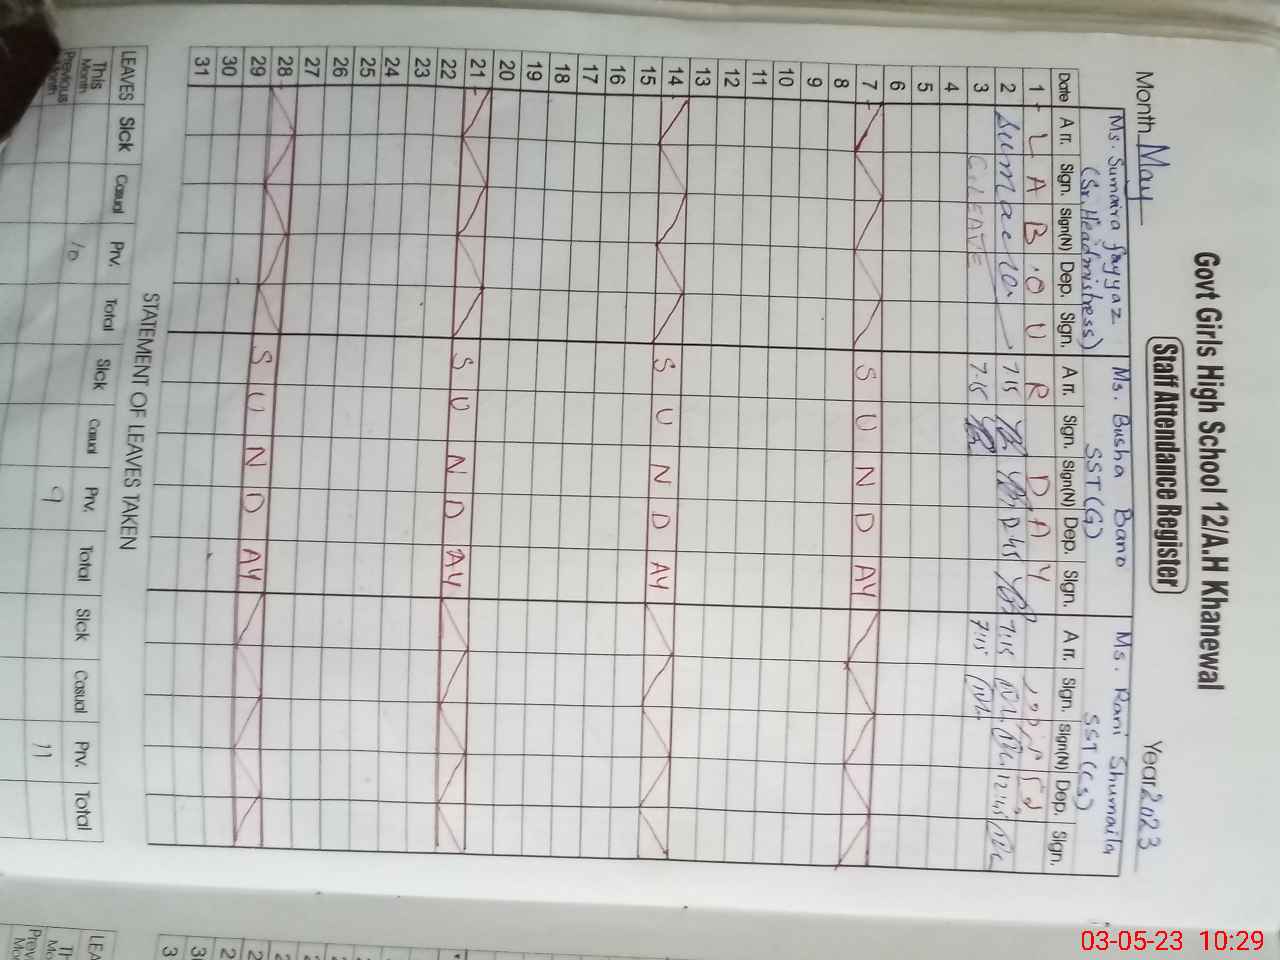 Govt Girls High School 12/A.H Khanewal
Staff Attendance Register
Month May Year 2023
Ms. Sumaira fayyaz Ms. Busha Bano Ms. Rani Shumaila
(Sr. Headmistress) SST(G) SST(CS)
Date Arr. Sign. Sign(N) Dep. Sign. Arr. Sign. Sign(N) Dep. Sign. Arr. Sign. Sign(N) Dep. Sign.
1 L A B O U R D A Y
2 7:15 7:15 12:45
3 C.LEAVE 7:15 7:15
4
5
6
7 S U N D AY
8
9
10
11
12
13
14 S U N D AY
15
16
17
18
19
20
21 S U N D AY
22
23
24
25
26
27
28 S U N D AY
29
30
31
STATEMENT OF LEAVES TAKEN
LEAVES Sick Casual Prv. Total Sick Casual Prv. Total Sick Casual Prv. Total
This Month
Previous Month 10 9 11
03-05-23 10:29